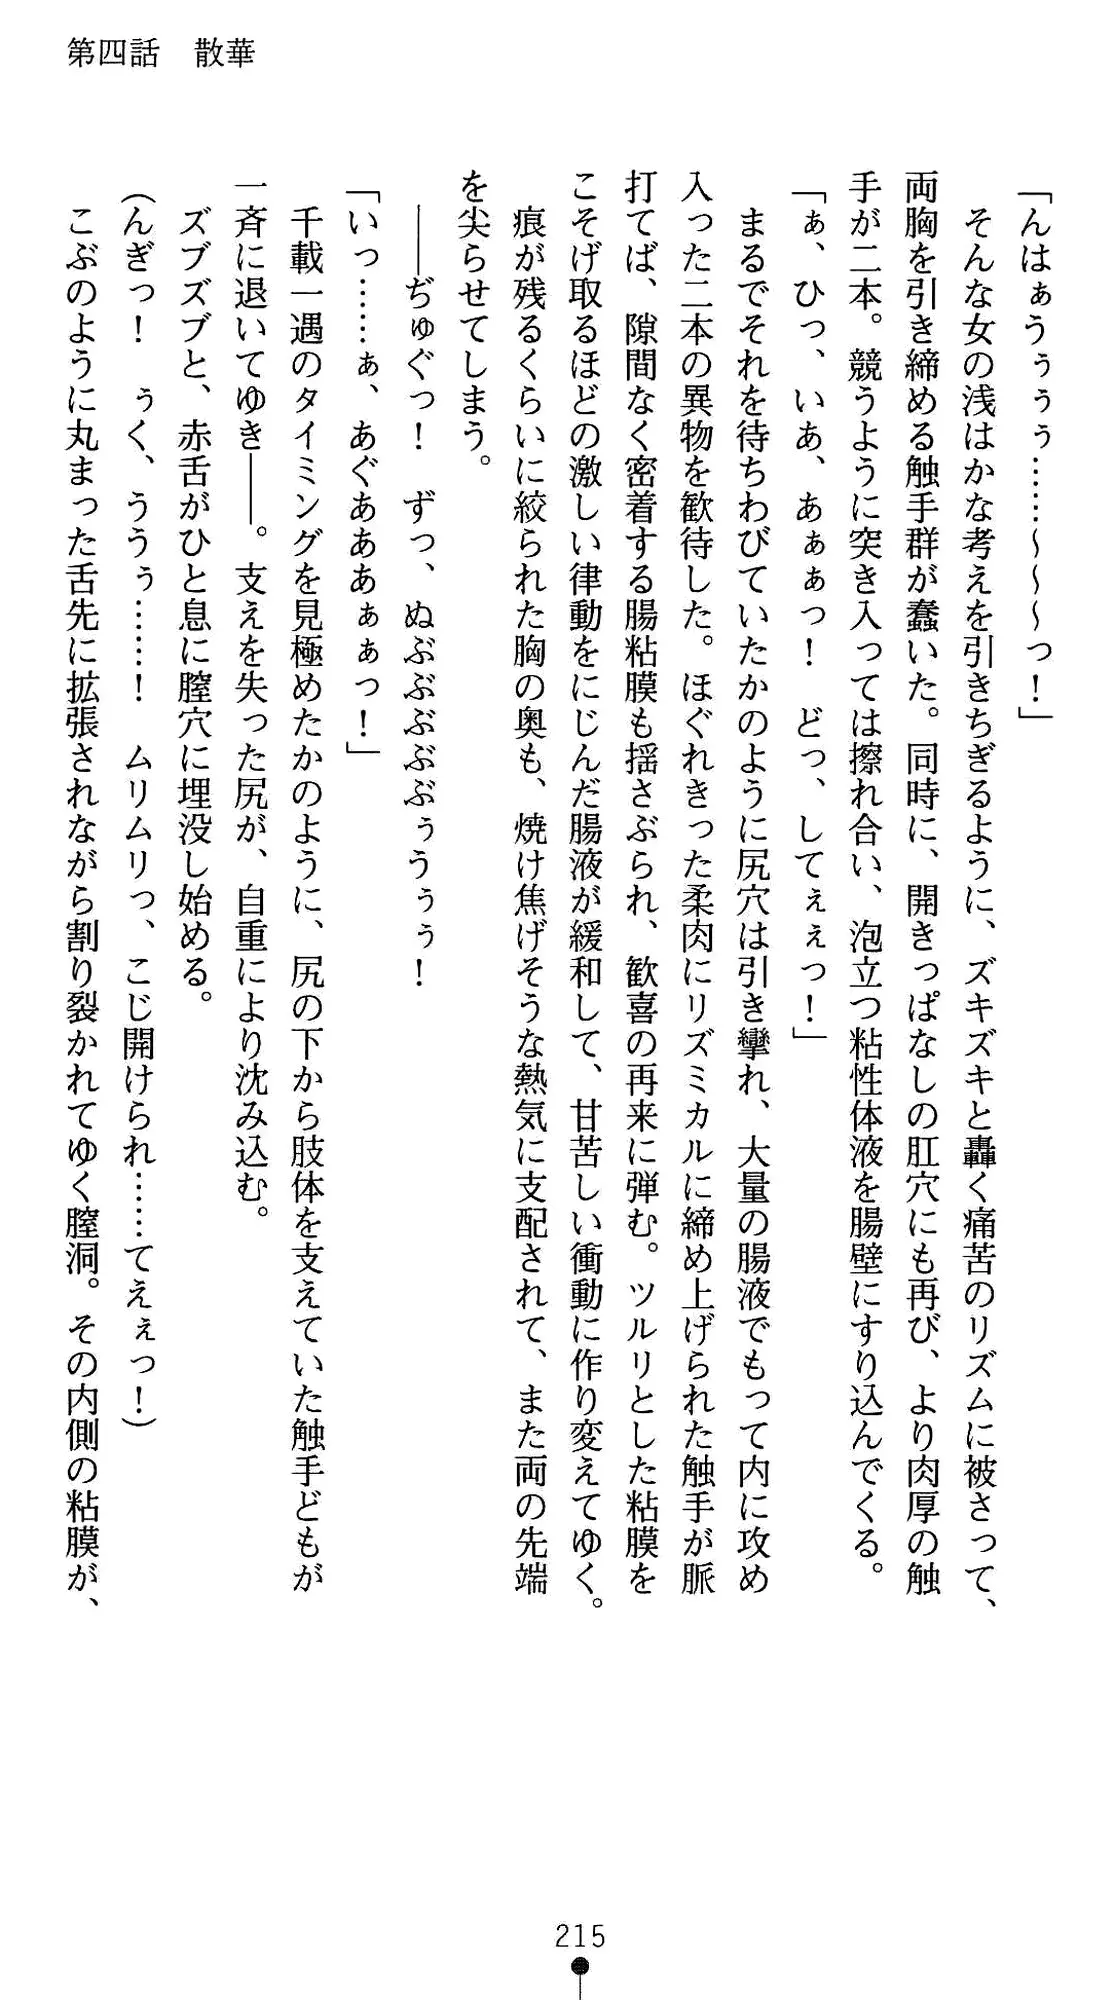 第四話　散華
「んはぁうぅぅぅ……～～～っ！」
　そんな女の浅はかな考えを引きちぎるように、ズキズキと轟く痛苦のリズムに被さって、
両胸を引き締める触手群が蠢いた。同時に、開きっぱなしの肛穴にも再び、より肉厚の触
手が二本。競うように突き入っては擦れ合い、泡立つ粘性体液を腸壁にすり込んでくる。
「ぁ、ひっ、いあ、あぁぁっ！　どっ、してぇぇっ！」
　まるでそれを待ちわびていたかのように尻穴は引き攣れ、大量の腸液でもって内に攻め
入った二本の異物を歓待した。ほぐれきった柔肉にリズミカルに締め上げられた触手が脈
打てば、隙間なく密着する腸粘膜も揺さぶられ、歓喜の再来に弾む。ツルリとした粘膜を
こそげ取るほどの激しい律動をにじんだ腸液が緩和して、甘苦しい衝動に作り変えてゆく。
　痕が残るくらいに絞られた胸の奥も、焼け焦げそうな熱気に支配されて、また両の先端
を尖らせてしまう。
　――ぢゅぐっ！　ずっ、ぬぶぶぶぶぶぅうぅぅ！
「いっ……ぁ、あぐあああぁぁっ！」
　千載一遇のタイミングを見極めたかのように、尻の下から肢体を支えていた触手どもが
一斉に退いてゆき――。支えを失った尻が、自重により沈み込む。
　ズブズブと、赤舌がひと息に膣穴に埋没し始める。
（んぎっ！　ぅく、ううぅ……！　ムリムリっ、こじ開けられ……てえぇっ！）
　こぶのように丸まった舌先に拡張されながら割り裂かれてゆく膣洞。その内側の粘膜が、
215